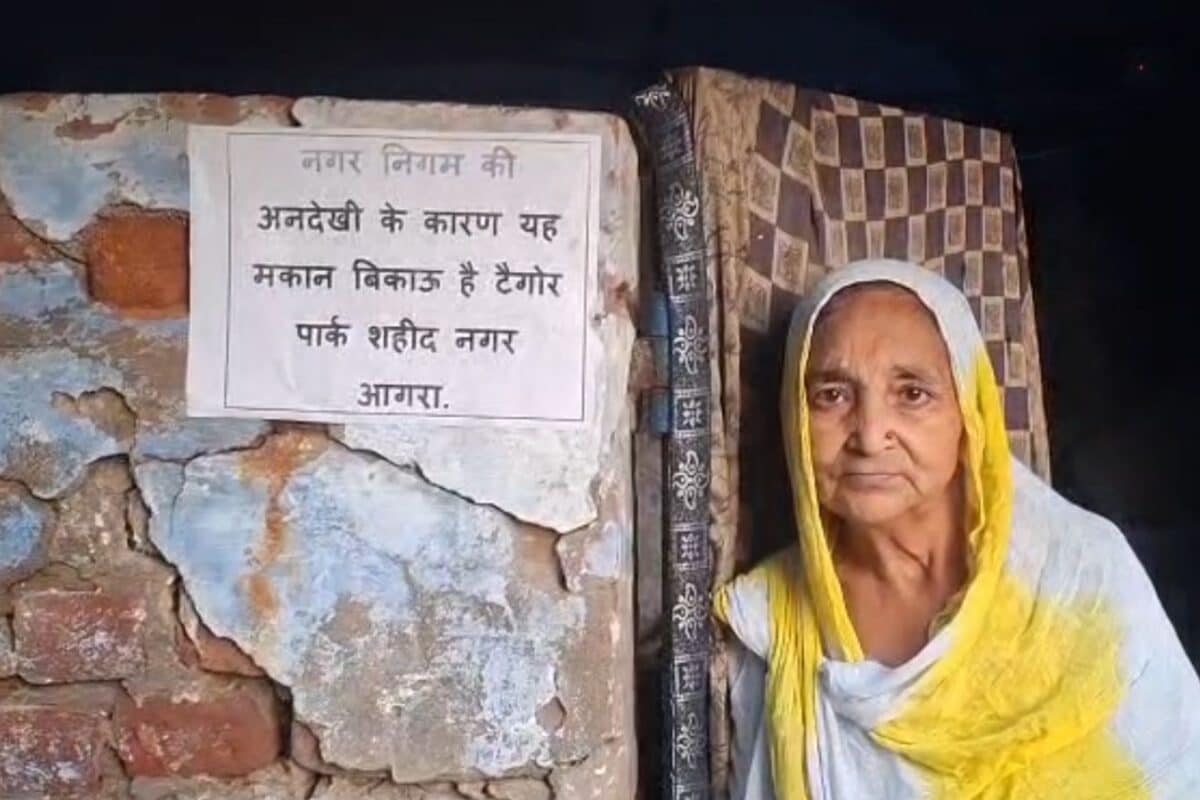 नगर निगम की
अनदेखी के कारण यह
मकान बिकाऊ है टैगोर
पार्क शहीद नगर
आगरा.